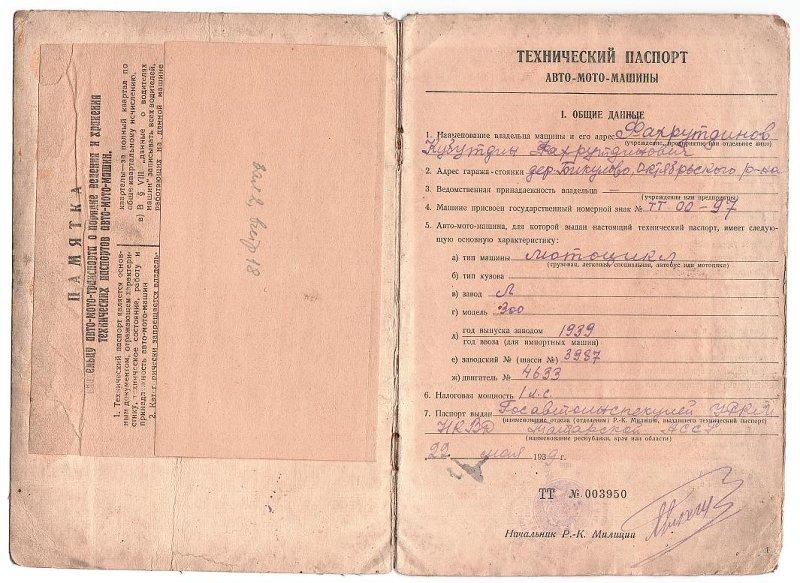 ПАМЯТКА
владельцу авто-мото-транспорта о порядке ведения и хранения
технических паспортов авто-мото-машин.
1. Технический паспорт является основ-
ным документом, отражающим характери-
стику, техническое состояние, работу и
принадлежность авто-мото-машин
2. Категорически запрещается владель-
кварталы—за полный квартал по
обще-квартальному исчислению.
в) В § VIII „данные о водителях
машин" записывать всех водителей,
работающих на данной машине
ТЕХНИЧЕСКИЙ ПАСПОРТ
АВТО-МОТО-МАШИНЫ
I. ОБЩИЕ ДАННЫЕ
1. Наименование владельца машины и его адрес Фахрутдинов
(учреждение, предприятие или отдельное лицо)
Кутутдин Фахрутдинович
2. Адрес гаража-стоянки дер. Тикулово, Октябрьского р-на
3. Ведомственная принадлежность владельца —
(учреждения или предприятия)
4. Машине присвоен государственный номерной знак № ТТ 00-97
5. Авто-мото-машина, для которой выдан настоящий технический паспорт, имеет следую-
щую основную характеристику:
а) тип машины мотоцикл
(грузовая, легковая, специальная, автобус или мотоцикл)
б) тип кузова
в) завод Л
г) модель 300
д) год выпуска заводом 1939
год ввоза (для импортных машин)
е) заводский № (шасси №) 3987
ж) двигатель № 4633
6. Налоговая мощность 1 л.с.
7. Паспорт выдан Госавтоинспекцией УРКМ
(наименование отдела (отделения) Р.-К. Милиции, выдавшего технический паспорт)
НКВД Татарской АССР
(наименование республики, края или области)
22 мая 1939 г.
ТТ № 003950
Начальник Р.-К. Милиции